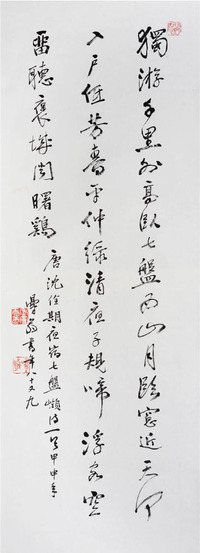 獨遊千里外高臥七盤西山月臨窗近天河
入戶低芳春平仲綠清夜子規啼浮客空
留聽褒城聞曙鷄
唐沈佺期夜宿七盤嶺詩一首甲申冬
學翁書年八十又九